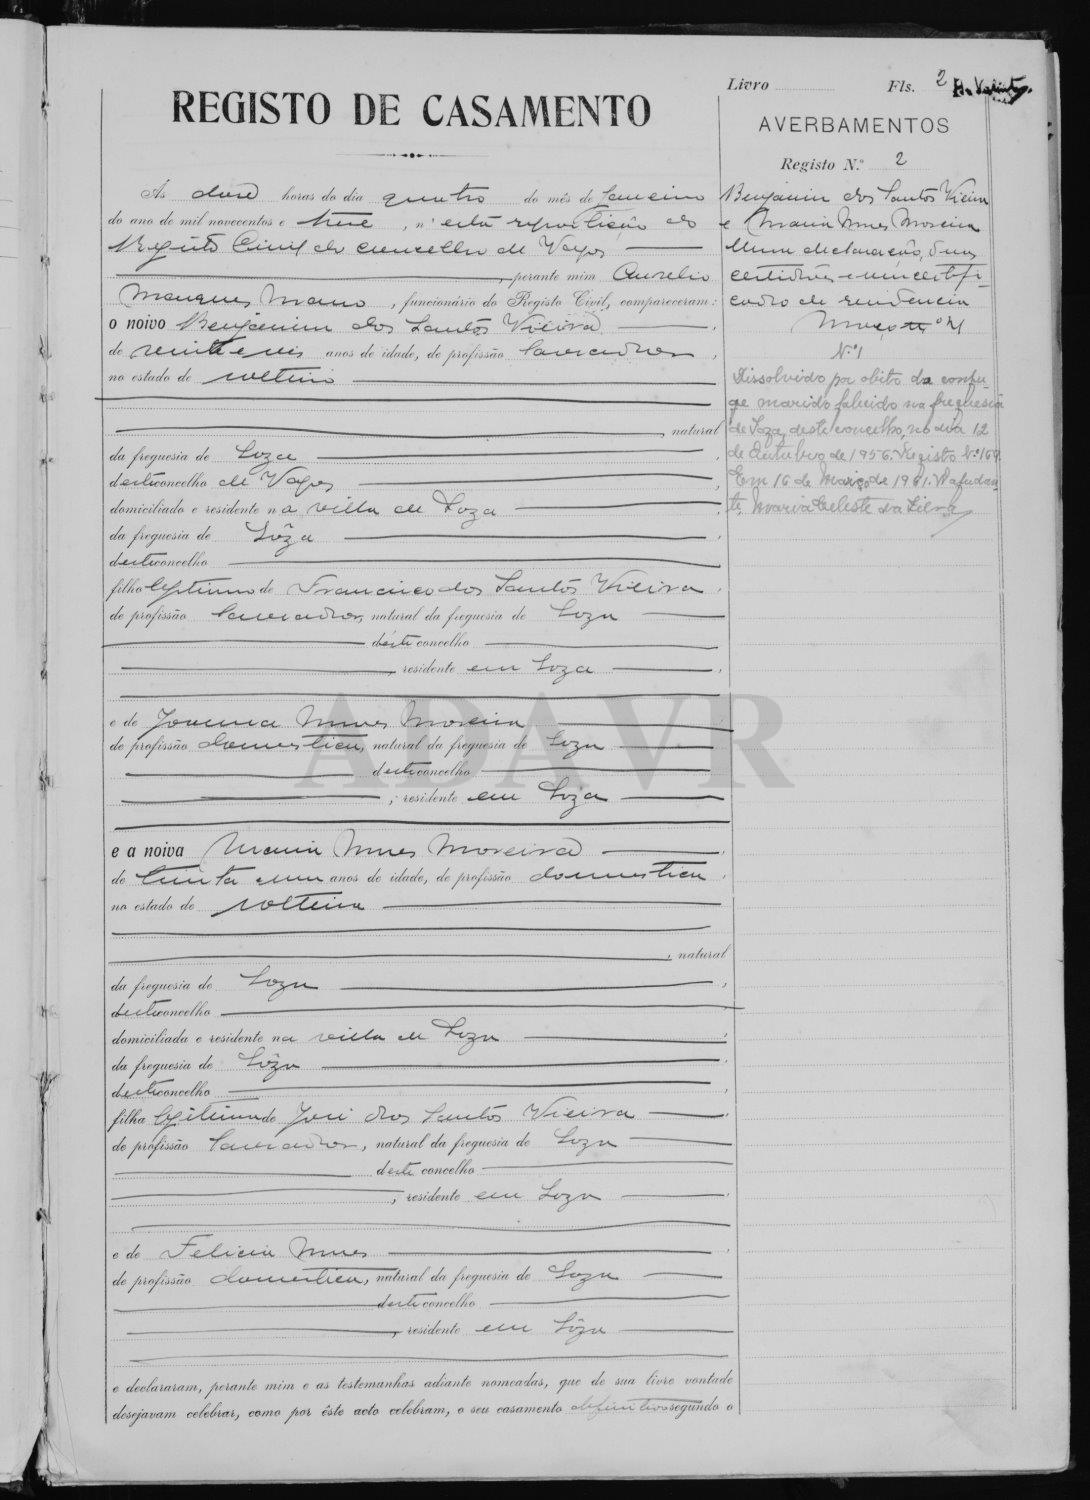 Livro Fls. 2
REGISTO DE CASAMENTO
AVERBAMENTOS
Registo N.º 2
Ás doze horas do dia quatro do mês de Janeiro
do ano de mil novecentos e treze, n'esta repartição do
Registo Civil do concelho de Vagos
, perante mim Aurelio
Marques Mano, funcionário do Registo Civil, compareceram:
o noivo Benjamim dos Santos Vieira
de vinte e seis anos de idade, de profissão lavrador,
no estado de solteiro
, natural
da freguesia de Soza
deste concelho de Vagos
domiciliado e residente na villa de Soza
da freguesia de Sôza
deste concelho
filho legitimo de Francisco dos Santos Vieira,
de profissão lavrador, natural da freguesia de Soza
deste concelho
, residente em Soza
e de Joanna Nunes Moreira
de profissão domestica, natural da freguesia de Soza
deste concelho
, residente em Soza
e a noiva Maria Nunes Moreira
de trinta e um anos de idade, de profissão domestica,
no estado de solteira
, natural
da freguesia de Soza
deste concelho
domiciliada e residente na villa de Soza
da freguesia de Sôza
deste concelho
filha legitima de José dos Santos Vieira
de profissão lavrador, natural da freguesia de Soza
deste concelho
, residente em Soza
e de Felicia Nunes
de profissão domestica, natural da freguesia de Soza
deste concelho
, residente em Sôza
e declararam, perante mim e as testemunhas adiante nomeadas, que de sua livre vontade
desejavam celebrar, como por êste acto celebram, o seu casamento definitivo segundo o
Benjamim dos Santos Vieira
e Maria Nunes Moreira
Uma declaração, duas
certidões e um certifi-
cado de residencia
Maço nº
N.º 1
Dissolvido por obito do conju-
ge marido falecido na freguesia
de Soza, deste concelho, no dia 12
de Outubro de 1956. Registo Nº 169.
Em 16 de Março de 1961. A ajudan-
te, Maria Celeste da Silva
ADAVR